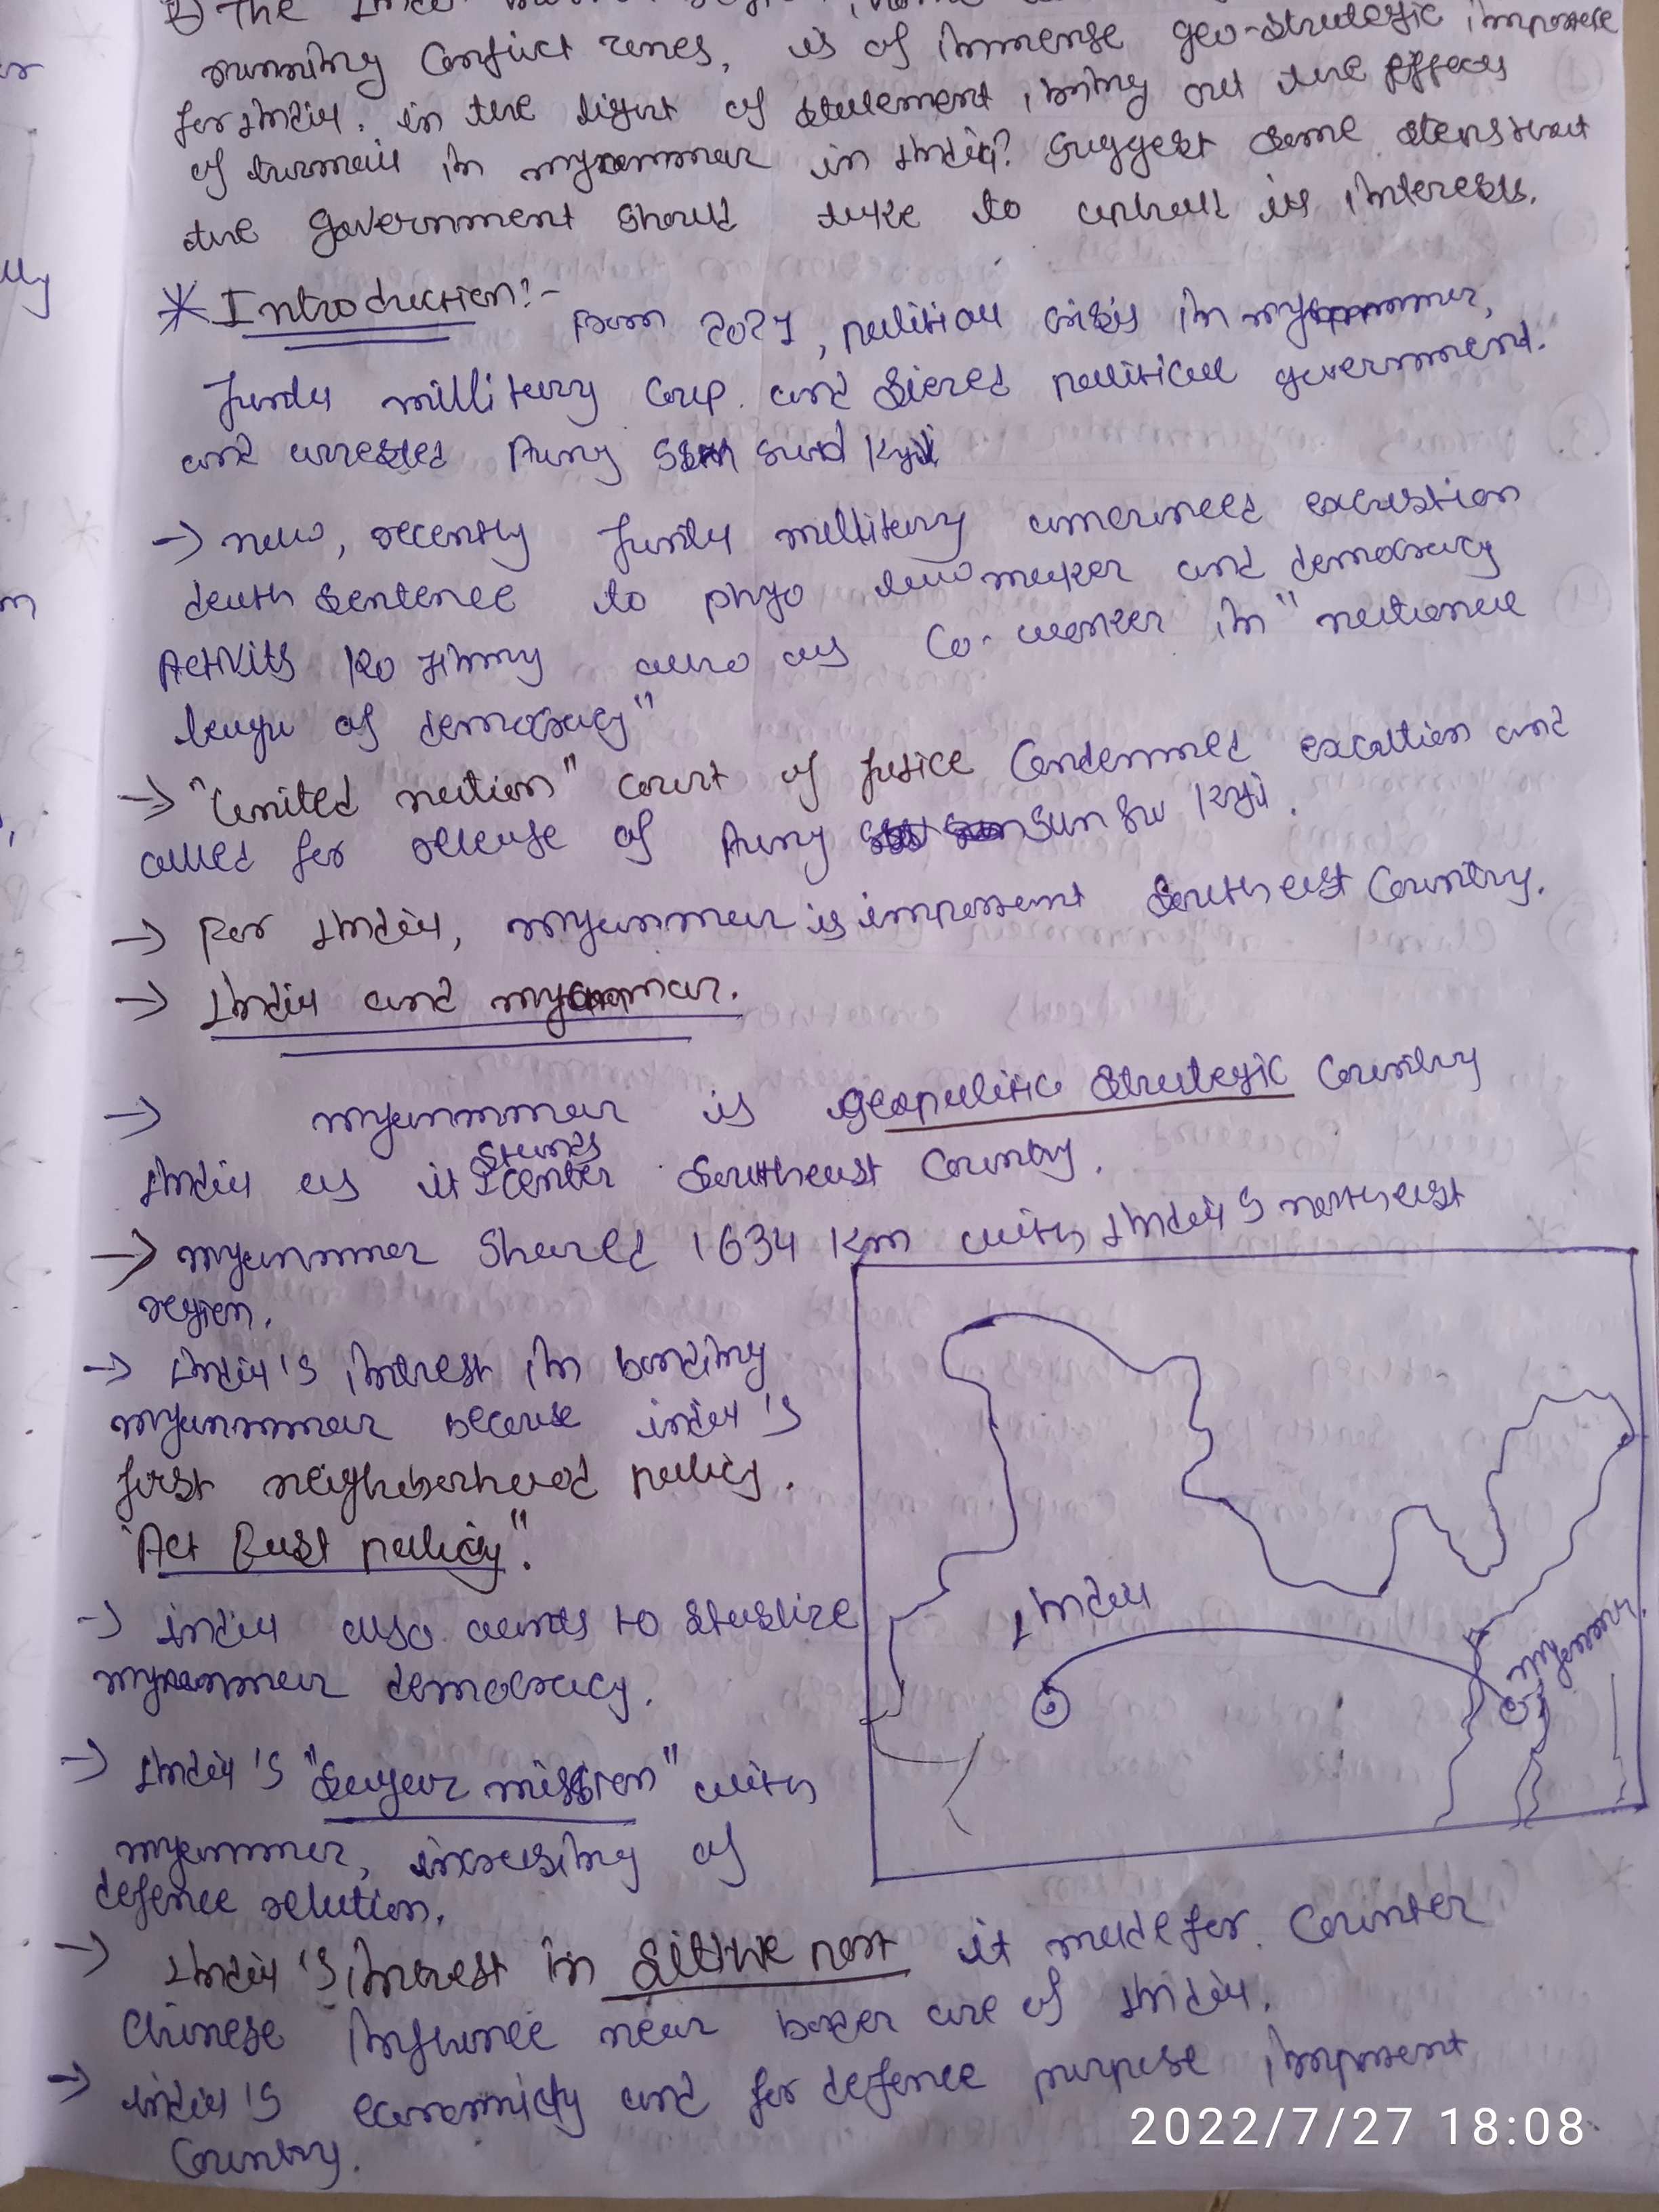 The
running Conflict zones, is of immense geo-strategic importance
for India. in the light of statement, bring out the effects
of turmoil in myanmar in India? Suggest some steps that
the government should take to uphold its interests.
* Introduction:- From 2021, political crisis in myanmar,
Junta millitary Coup. and political government.
and arrested Aung San Suu Kyi
→ now, recently Junta millitary announced
death sentence to phyo law maker and democracy
Activits Ko Jimmy also as Co-worker in "national
league of democracy"
→ "United nation" court of justice Condemned and
called for release of Aung San Su Kyi.
→ For India, myanmar is important South east Country.
→ India and myanmar.
→ myanmar is geopolitic Strategic Country
India as it stands center Southeast Country.
→ myanmar Shared 1634 Km with India's northeast
region.
→ India's intrest in bonding
myanmar because india's
first neighborhood policy.
"Act East policy".
→ india also wants to
myanmar democracy.
→ India's "Sagar mission" with
myanmar, increasing of
defence relation.
→ India's intrest in Sittwe port it made for. Counter
Chinese near of India.
→ india's and for defence purpose
Country.
India
myanmar.
2022/7/27 18:08